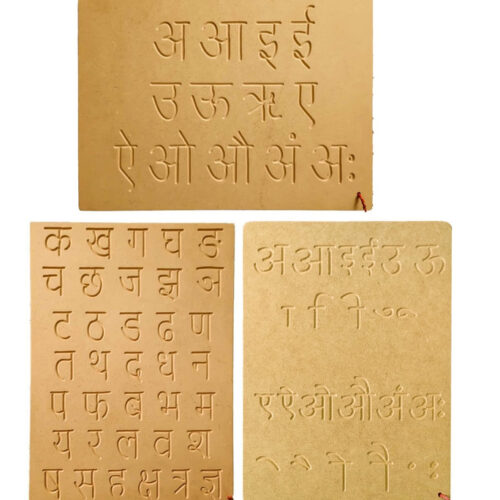 अ आ इ ई
उ ऊ ऋ ए
ऐ ओ औ अं अः
क ख ग घ ङ
च छ ज झ ञ
ट ठ ड ढ ण
त थ द ध न
प फ ब भ म
य र ल व श
ष स ह क्ष त्र ज्ञ
अ आ इ ई उ ऊ
ा ि ी ु ू
ए ऐ ओ औ अं अः
े ै ो ौ ं ः